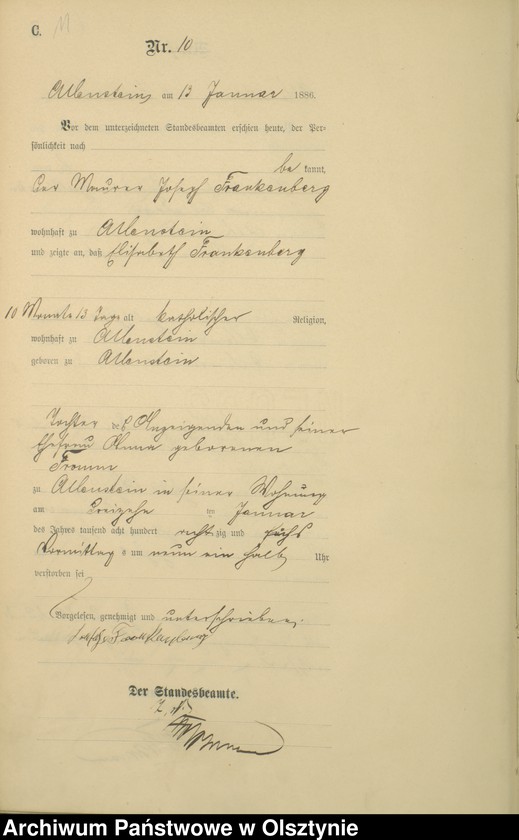 C.
Nr. 10
Allenstein, am 13 Januar 1886.
Vor dem unterzeichneten Standesbeamten erschien heute, der Per-
sönlichkeit nach
be kannt,
der Maurer Joseph Frankenberg
wohnhaft zu Allenstein
und zeigte an, daß Elisabeth Frankenberg
10 Monate 13 Tage alt katholischer Religion,
wohnhaft zu Allenstein
geboren zu Allenstein
Tochter des Anzeigenden und seiner
Ehefrau Anna geborenen
Fromm
zu Allenstein in seiner Wohnung
am dreizehn ten Januar
des Jahres tausend acht hundert acht zig und sechs
Vormittags um neun ein halb Uhr
verstorben sei
Vorgelesen, genehmigt und unterschrieben.
Joseph Frankenberg
Der Standesbeamte.
Archiwum Państwowe w Olsztynie